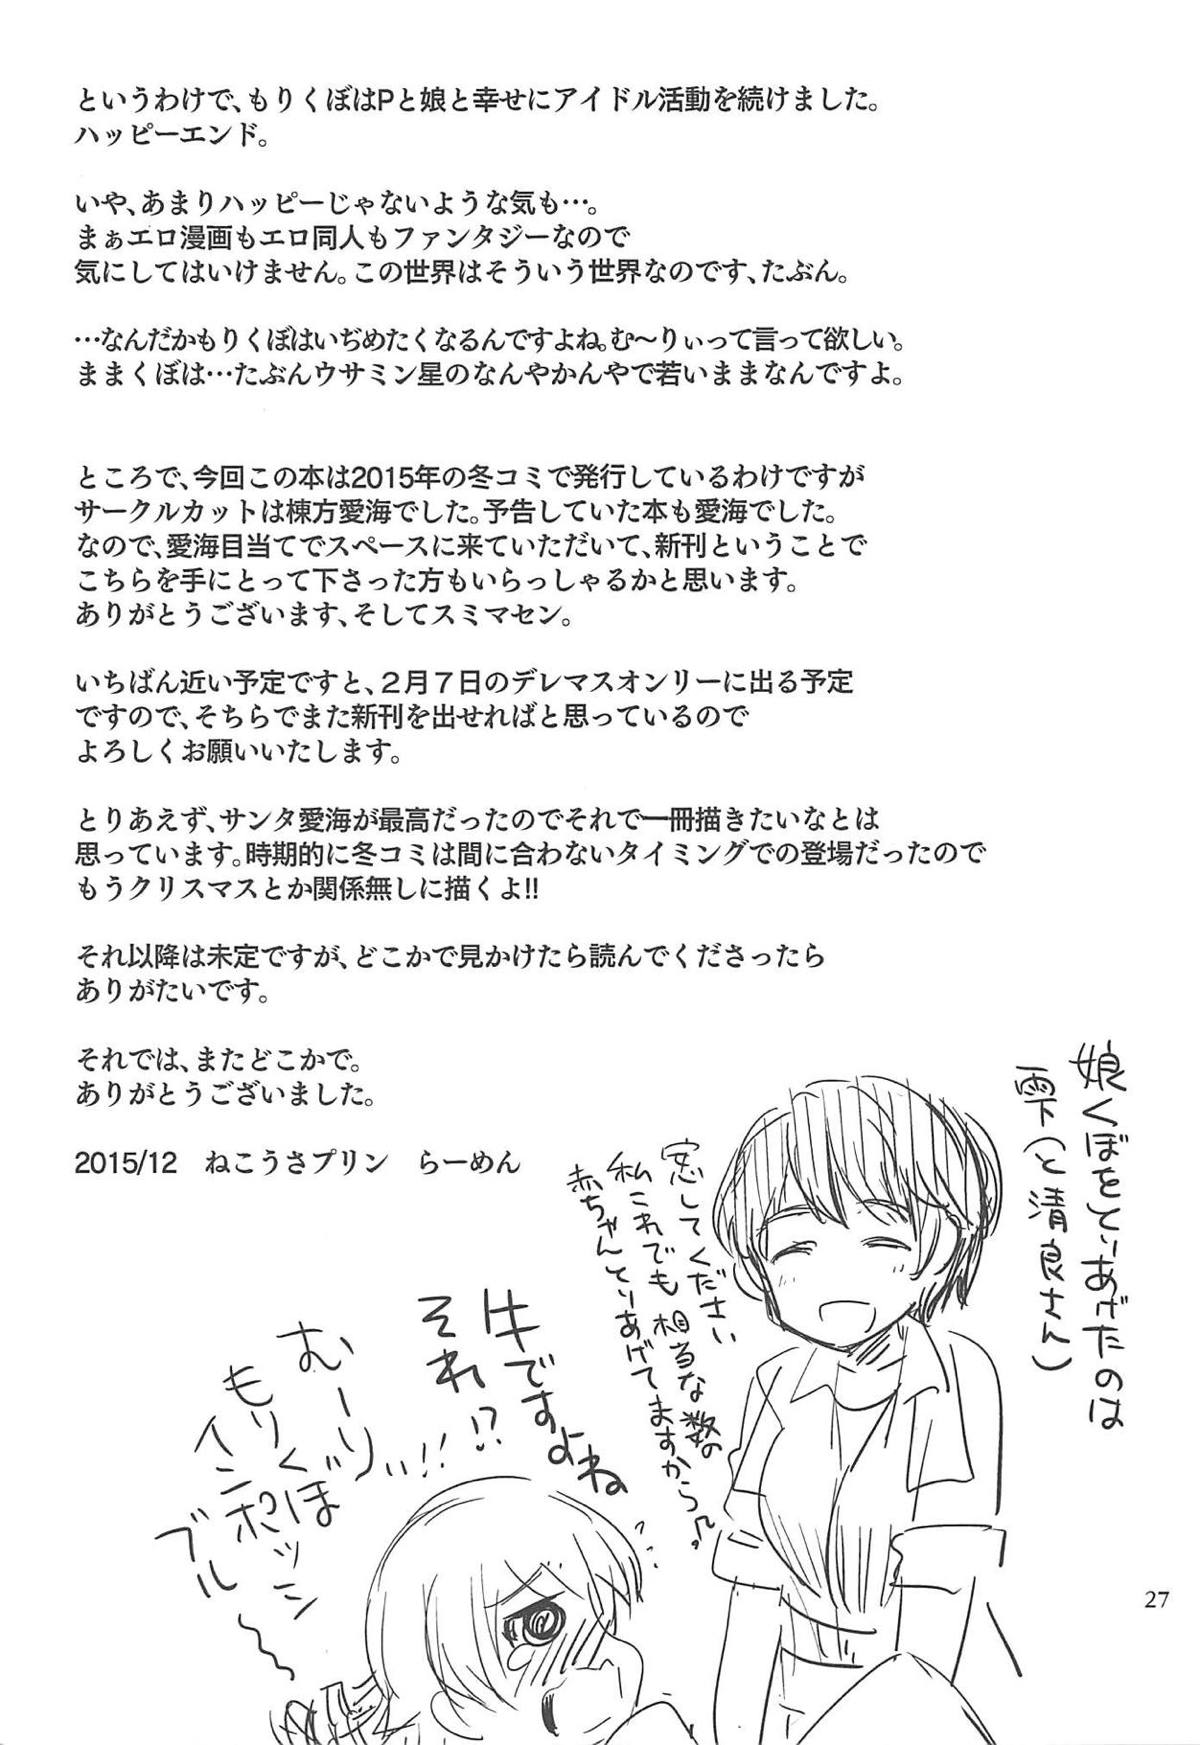 というわけで、もりくぼはPと娘と幸せにアイドル活動を続けました。
ハッピーエンド。
いや、あまりハッピーじゃないような気も…。
まぁエロ漫画もエロ同人もファンタジーなので
気にしてはいけません。この世界はそういう世界なのです、たぶん。
…なんだかもりくぼはいぢめたくなるんですよね。む～りぃって言って欲しい。
ままくぼは…たぶんウサミン星のなんやかんやで若いままなんですよ。
ところで、今回この本は2015年の冬コミで発行しているわけですが
サークルカットは棟方愛海でした。予告していた本も愛海でした。
なので、愛海目当てでスペースに来ていただいて、新刊ということで
こちらを手にとって下さった方もいらっしゃるかと思います。
ありがとうございます、そしてスミマセン。
いちばん近い予定ですと、２月７日のデレマスオンリーに出る予定
ですので、そちらでまた新刊を出せればと思っているので
よろしくお願いいたします。
とりあえず、サンタ愛海が最高だったのでそれで一冊描きたいなとは
思っています。時期的に冬コミは間に合わないタイミングでの登場だったので
もうクリスマスとか関係無しに描くよ!!
それ以降は未定ですが、どこかで見かけたら読んでくださったら
ありがたいです。
それでは、またどこかで。
ありがとうございました。
2015/12　ねこうさプリン　らーめん
娘くぼをとりあげたのは
雫(と清良さん)
安心してください
私これでも相当な数の
赤ちゃんとりあげてますから♪
牛ですよね
それ!?
むーりぃ!!
もりくぼ
27